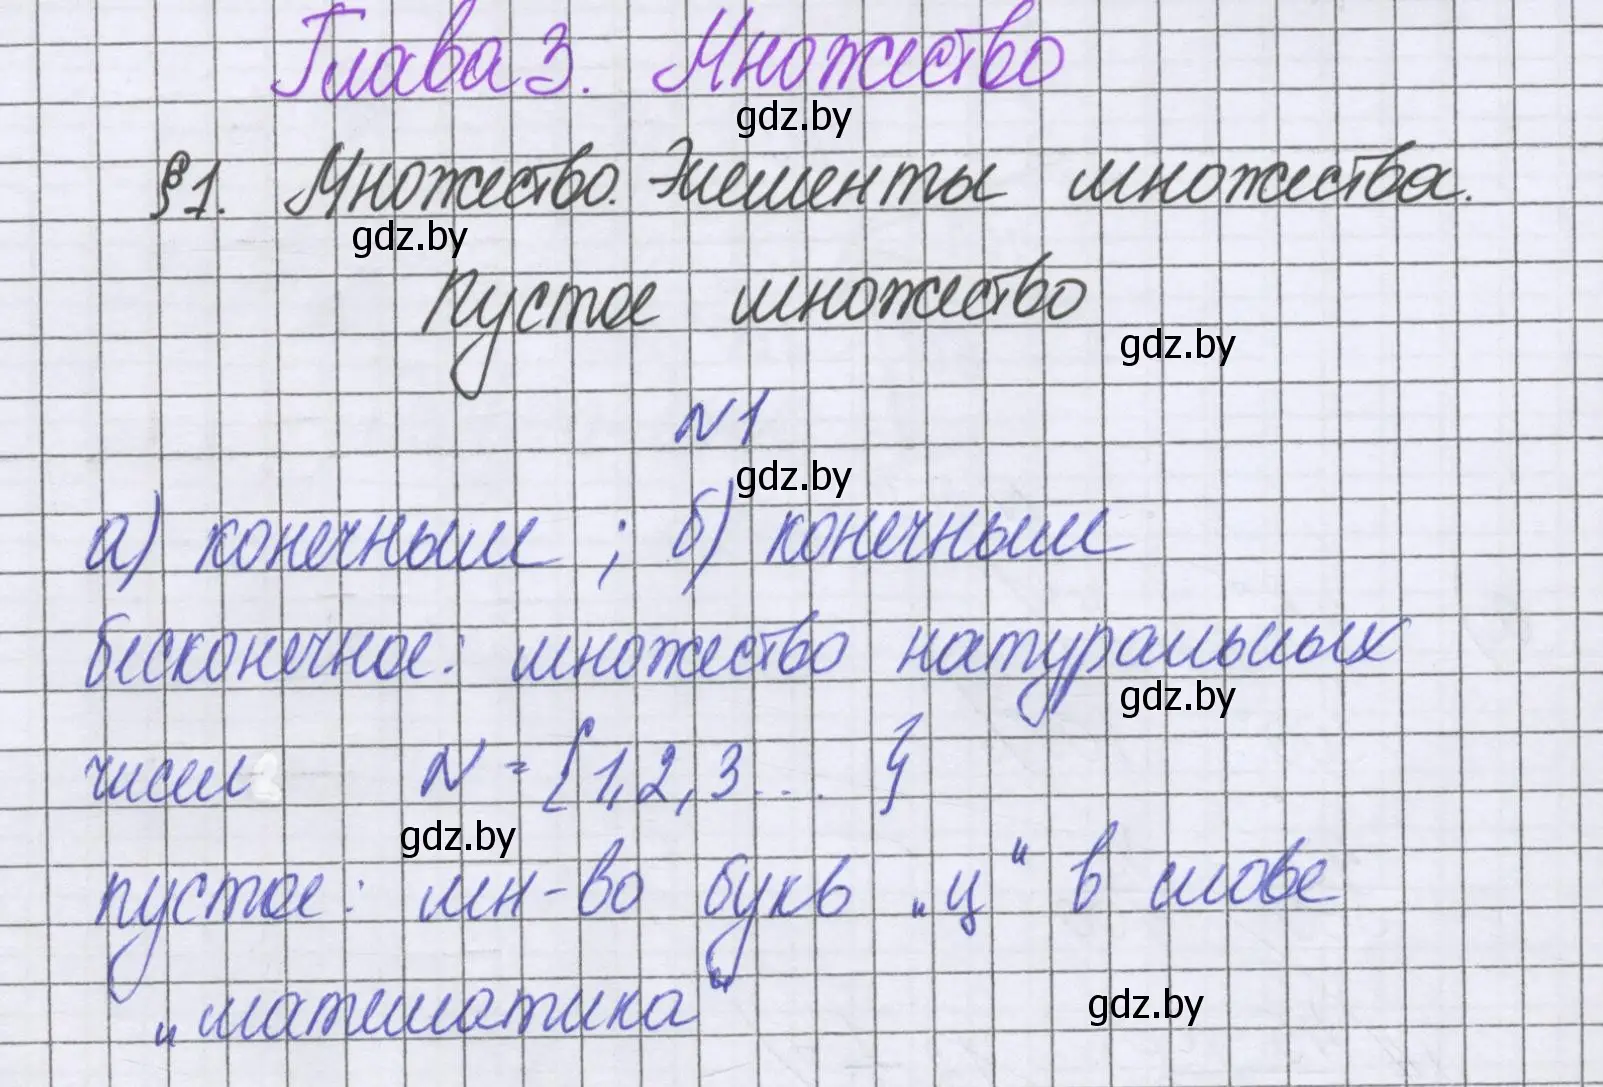 Глава 3. Множество
gdz.by
§1. Множество. Элементы множества.
gdz.by
Пустое множество
gdz.by
N1
gdz.by
а) конечным ; б) конечным
бесконечное: множество натуральных
gdz.by
чисел N = {1,2,3... }
gdz.by
пустое: мн-во букв „ц“ в слове
„математика“
gdz.by